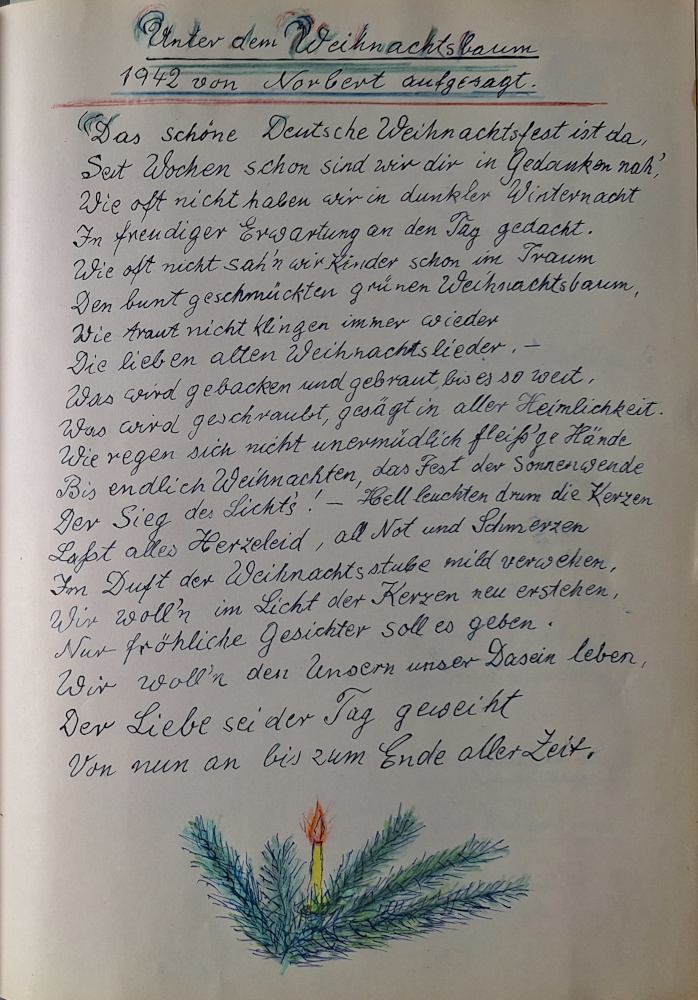 Unter dem Weihnachtsbaum
1942 von Norbert aufgesagt.
"Das schöne Deutsche Weihnachtsfest ist da,
Seit Wochen schon sind wir dir in Gedanken nah',
Wie oft nicht haben wir in dunkler Winternacht
In freudiger Erwartung an den Tag gedacht.
Wie oft nicht sah'n wir Kinder schon im Traum
Den bunt geschmückten grünen Weihnachtsbaum,
Wie traut nicht klingen immer wieder
Die lieben alten Weihnachtslieder. –
Was wird gebacken und gebraut, bis es so weit,
Was wird geschraubt, gesägt in aller Heimlichkeit.
Wie regen sich nicht unermüdlich fleiß'ge Hände
Bis endlich Weihnachten, das Fest der Sonnenwende
Der Sieg des Licht's! – Hell leuchten drum die Kerzen
Laßt alles Herzeleid, all Not und Schmerzen
Im Duft der Weihnachtsstube mild verwehen,
Wir woll'n im Licht der Kerzen neu erstehen,
Nur fröhliche Gesichter soll es geben.
Wir woll'n den Unsern unser Dasein leben,
Der Liebe sei der Tag geweiht
Von nun an bis zum Ende aller Zeit.